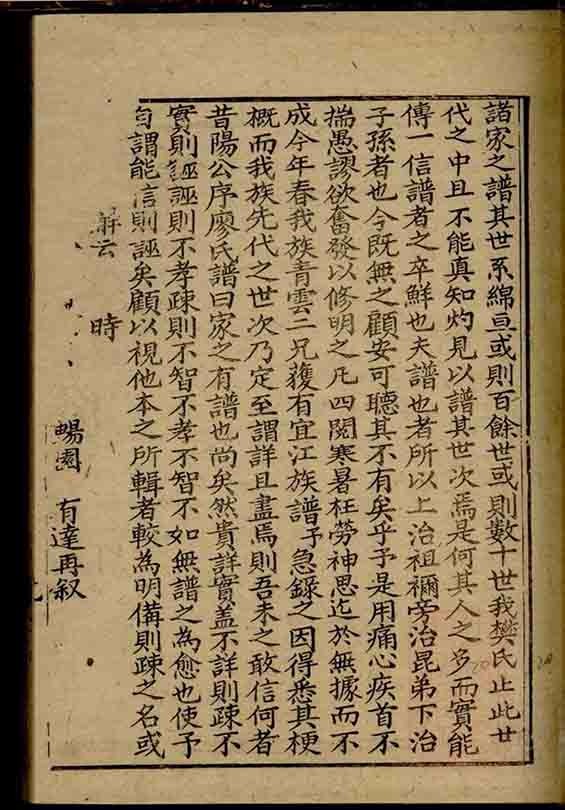 諸家之譜其世系綿亘或則百餘世或則數十世我樊氏止此廿
代之中且不能真知灼見以譜其世次焉是何其人之多而實能
傳一信譜者之卒鮮也夫譜也者所以上治祖禰旁治昆弟下治
子孫者也今既無之顧安可聽其不有矣乎予是用痛心疾首不
揣愚謬欲奮發以修明之凡四閱寒暑枉勞神思迄於無據而不
成今年春我族青雲二兄獲有宜江族譜予急錄之因得悉其梗
概而我族先代之世次乃定至謂詳且盡焉則吾未之敢信何者
昔陽公序廖氏譜曰家之有譜也尚矣然貴詳實盖不詳則疎不
實則誣誣則不孝疎則不智不孝不智不如無譜之為愈也使予
自謂能信則誣矣顧以視他本之所輯者較為明備則疎之名或
云 時
暢園 有達再叙